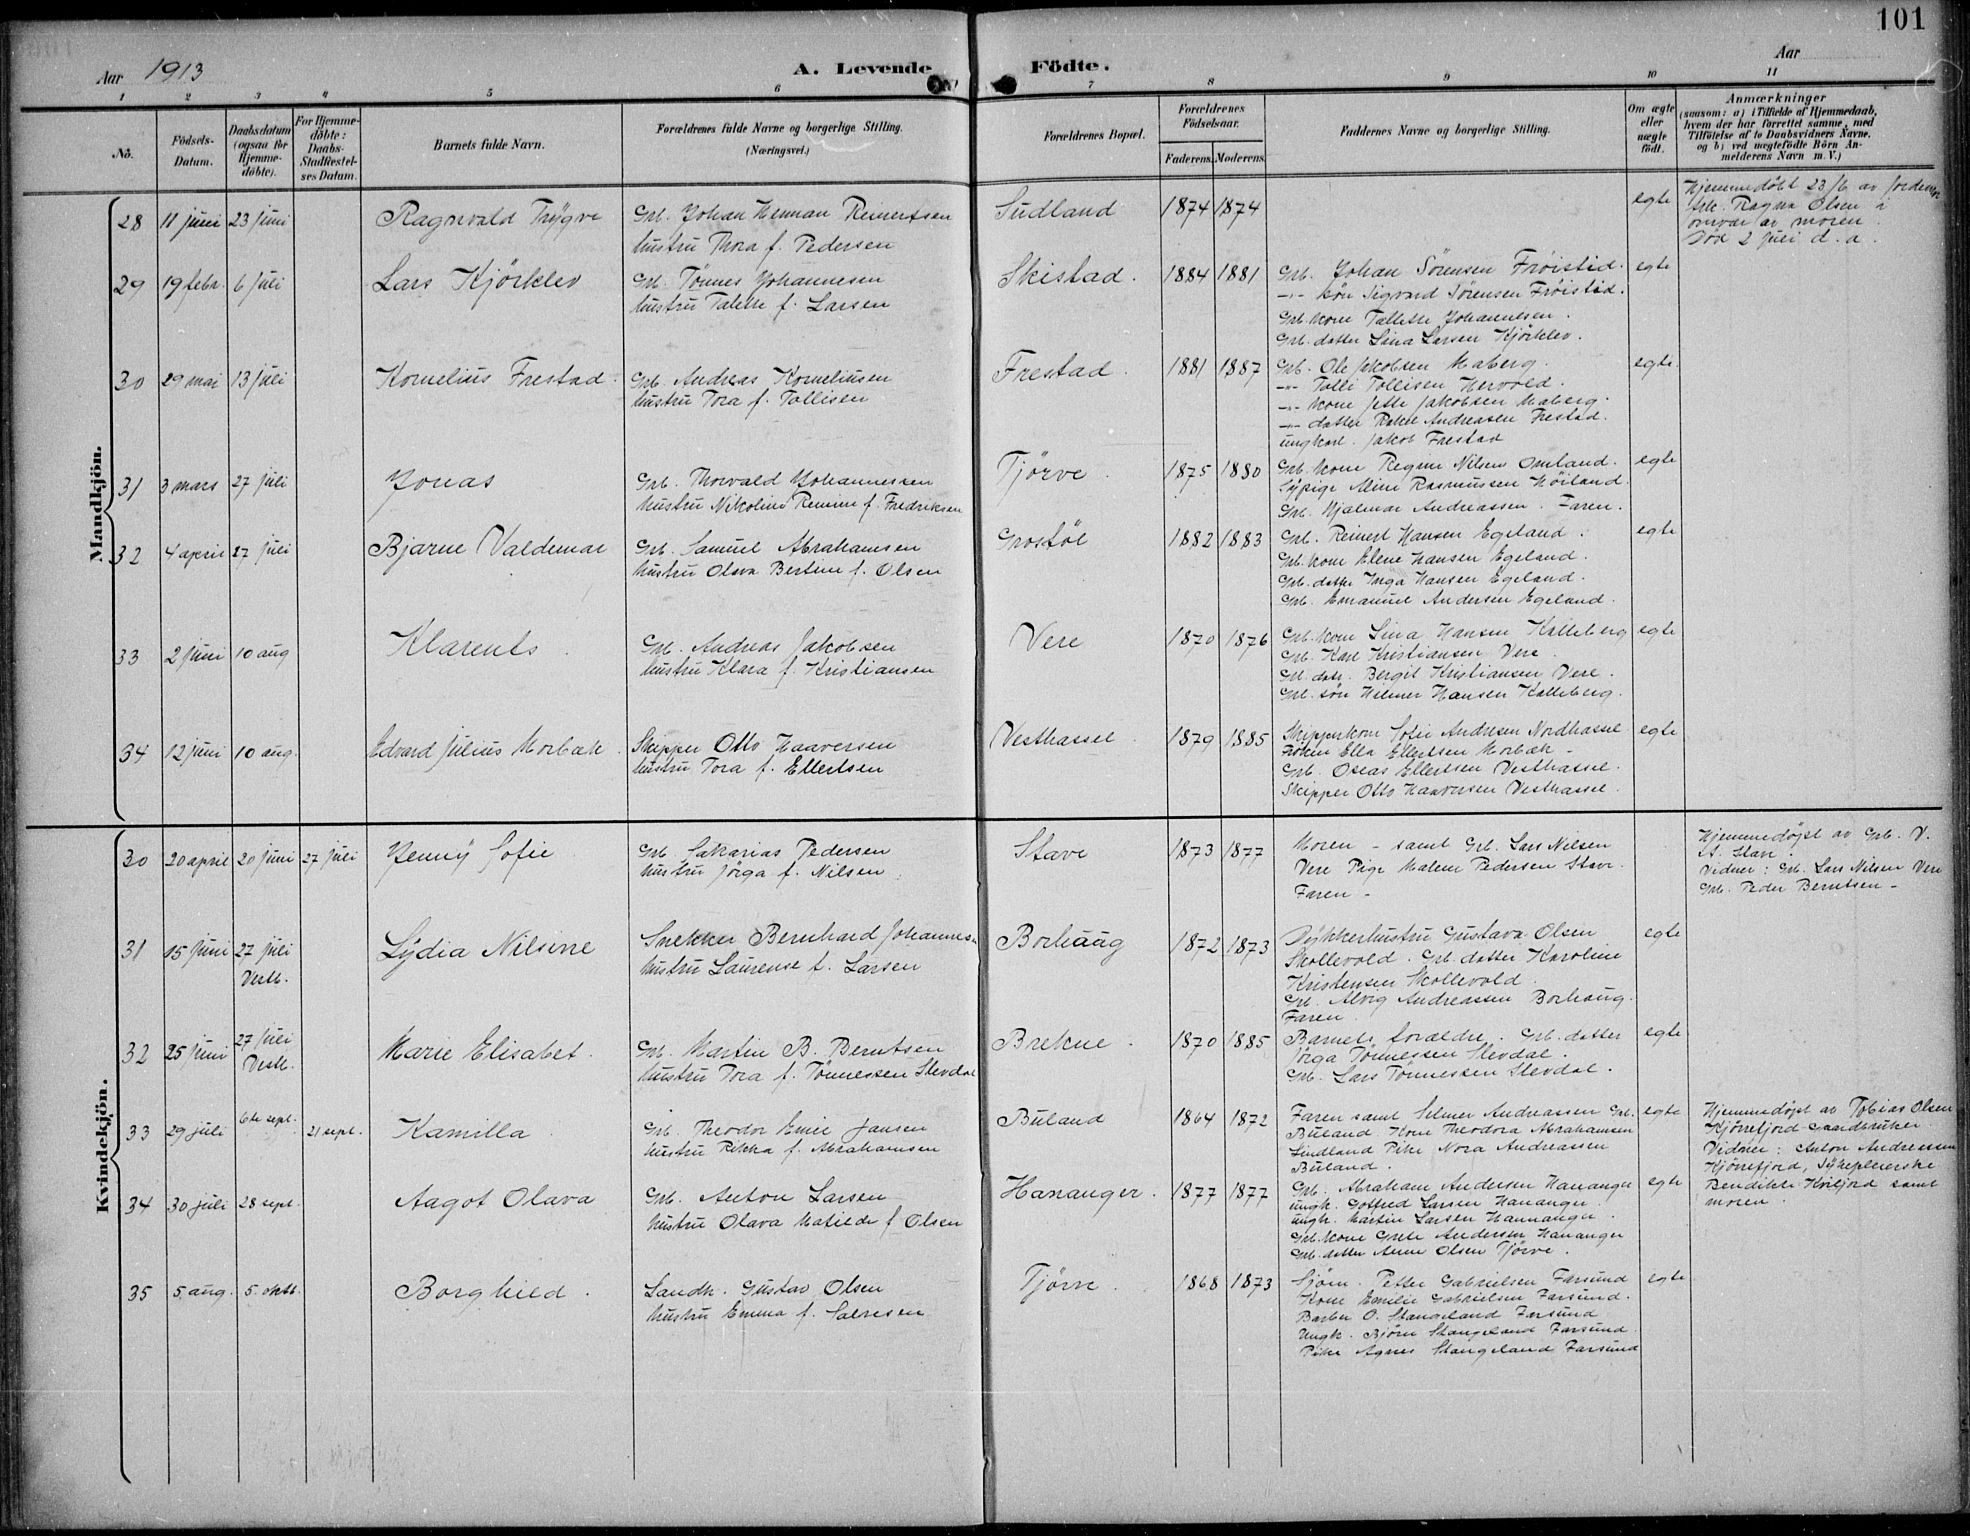 101
Aar 1913
A. Levende
Födte.
Aar
1 2 3 4 5 6 7 8 9 10 11
No.
Födsels-Datum.
Daabsdatum (ogsaa for Hjemme-döbte).
For Hjemme-döbte: Daabs-Stadfæstel-ses Datum.
Barnets fulde Navn.
Forældrenes fulde Navne og borgerlige Stilling.
(Næringsvei.)
Forældrenes Bopæl.
Forældrenes Födselsaar.
Faderens. Moderens.
Faddernes Navne og borgerlige Stilling.
Om ægte eller uægte födt.
Anmærkninger
(saasom: a) i Tilfælde af Hjemmedaab,
hvem der har forrettet samme, med
Tilföielse af to Daabsvidners Navne,
og b) ved uægtefödte Börn An-
melderens Navn m. V.)
Mandkjön.
28 11 juni 23 juni Ragnvald Trygve
Grb. Johan Herman Reinertsen
hustru Thora f. Pedersen
Sudland 1874 1874 egte
Hjemmedøbt 23/6 av jordemor
frk. Ragna Olsen i
nærvær av moren.
Død 2 juli d. a.
29 19 febr. 6 juli Lars Kjörklev
Grb. Tønnes Johannesen
hustru Talette f. Larsen
Skistad. 1884 1881
Grb. Johan Sørensen Frøistid.
-"- søn Sigvard Sørensen Frøistid.
Grb. kone Tallette Johannesen.
Grb. datter Sina Larsen Kjörklev.
egte
30 29 mai 13 juli Kornelius Frestad.
Grb. Andreas Korneliusen
hustru Tora f. Tollisen
Frestad. 1881 1887
Grb. Ole Jakobsen Maberg.
-"- Tolli Tollisen Hervold.
-"- kone Jette Jakobsen Maberg.
-"- datter Rakel Andreasen Frestad.
ungkarl. Jakob Frestad
egte
31 3 mars 27 juli Jonas
Grb. Thorvald Johannessen
hustru Nikoline Remine f. Fredriksen
Tjörve. 1875 1880
Grb. kone Regine Nilsen Omland.
Sypige Aline Rasmussen Høiland.
Grb. Hjalmar Andreassen. Faren.
egte
32 4 april 27 juli Bjarne Valdemar
Grb. Samuel Abrahamsen
hustru Olava Bertine f. Olsen
Grostøl 1882 1883
Grb. Reinert Hansen Egeland.
Grb. kone Elene Hansen Egeland.
Grb. datter Inga Hansen Egeland.
Grb. Emanuel Andersen Egeland.
egte
33 2 juni 10 aug Klarents.
Grb. Andreas Jakobsen
hustru Klara f. Kristiansen
Vere 1870 1876
Grb. kone Sina Hansen Kalleberg
Grb. Karl Kristiansen Vere.
Grb. datr. Bergit Kristiansen Vere.
Grb. søn Helmer Hansen Kalleberg.
egte
34 12 juni 10 aug. Edvard Julius Morbæk.
Skipper Otto Haaversen
hustru Tora f. Ellertsen
Vesthassel 1879 1885
Skipperkone Sofie Andresen Nordhassel
Frøken Ella Ellertsen Morbæk -
Grb. Oseas Ellertsen Vesthassel.
Skipper Otto Haaversen Vesthassel.
egte
Kvindekjön.
30 20 april 20 juni 27 juli Jenny Sofie
Grb. Sakarias Pedersen
hustru Jørga f. Nilsen
Stave 1873 1877
Moren - samt Grb. Lars Nilsen
Vere Pige Malene Pedersen Stave.
Faren -
Hjemmedøpt av Grb. V.
A. Stave.
Vidner: Grb. Lars Nilsen Vere
Grb. Peder Berntsen -
31 15 juni 27 juli Vestb. Lydia Nilsine
Snekker Bernhard Johannesen
hustru Laurense f. Larsen
Borhaug 1872 1873
Dykkerhustru Gustava Olsen
Skollevold. Grb. datter Karoline
Kristensen Skollevold.
Grb. Alvig Andreassen Borhaug.
Faren.
egte
32 25 juni 27 juli Vestb. Marie Elisabet.
Grb. Martin B. Berntsen
hustru Tora f. Tönnessen Slevdal
Brekne. 1870 1885
Barnets forældre. Grb. datter
Jörga Tönnessen Slevdal.
Grb. Lars Tönnessen Slevdal.
egte
33 29 juli 6te sept. 21 sept. Kamilla.
Grb. Theodor Emil Jansen
hustru Rikka f. Abrahamsen
Buland 1864 1872
Faren samt Selmer Andreassen Grb.
Buland. Kone Theodora Abrahamsen
Lindland Pike Nora Andreassen
Buland.
egte
Hjemmedøpt av Tobias Olsen
Kjørrefjord gaardbruker.
Vidner: Anton Andreassen
Kjørrefjord, Sykepleierske
Bendikte Høifjord samt
moren.
34 30 juli 28 sept. Aagot Olava
Grb. Anton Larsen
hustru Olava Matilde f. Olsen
Hananger. 1877 1877
Grb. Abraham Andersen Hananger
ungk. Gotfred Larsen Hananger.
ungk. Martin Larsen Hannanger.
Grb. kone Grete Andersen Hananger
Grb. datter Anne Olsen Tjörve.
egte
35 5 aug. 5 oktb. Borghild.
Landh. Gustav Olsen
hustru Emma f. Salvesen
Tjörve. 1868 1873
Sjöm. Petter Gabrielsen Farsund
Kone Emilie Gabrielsen Farsund.
Barber O. Stangeland Farsund
Ungk. Björn Stangeland Farsund.
Pike Agnes Stangeland Farsund
egte